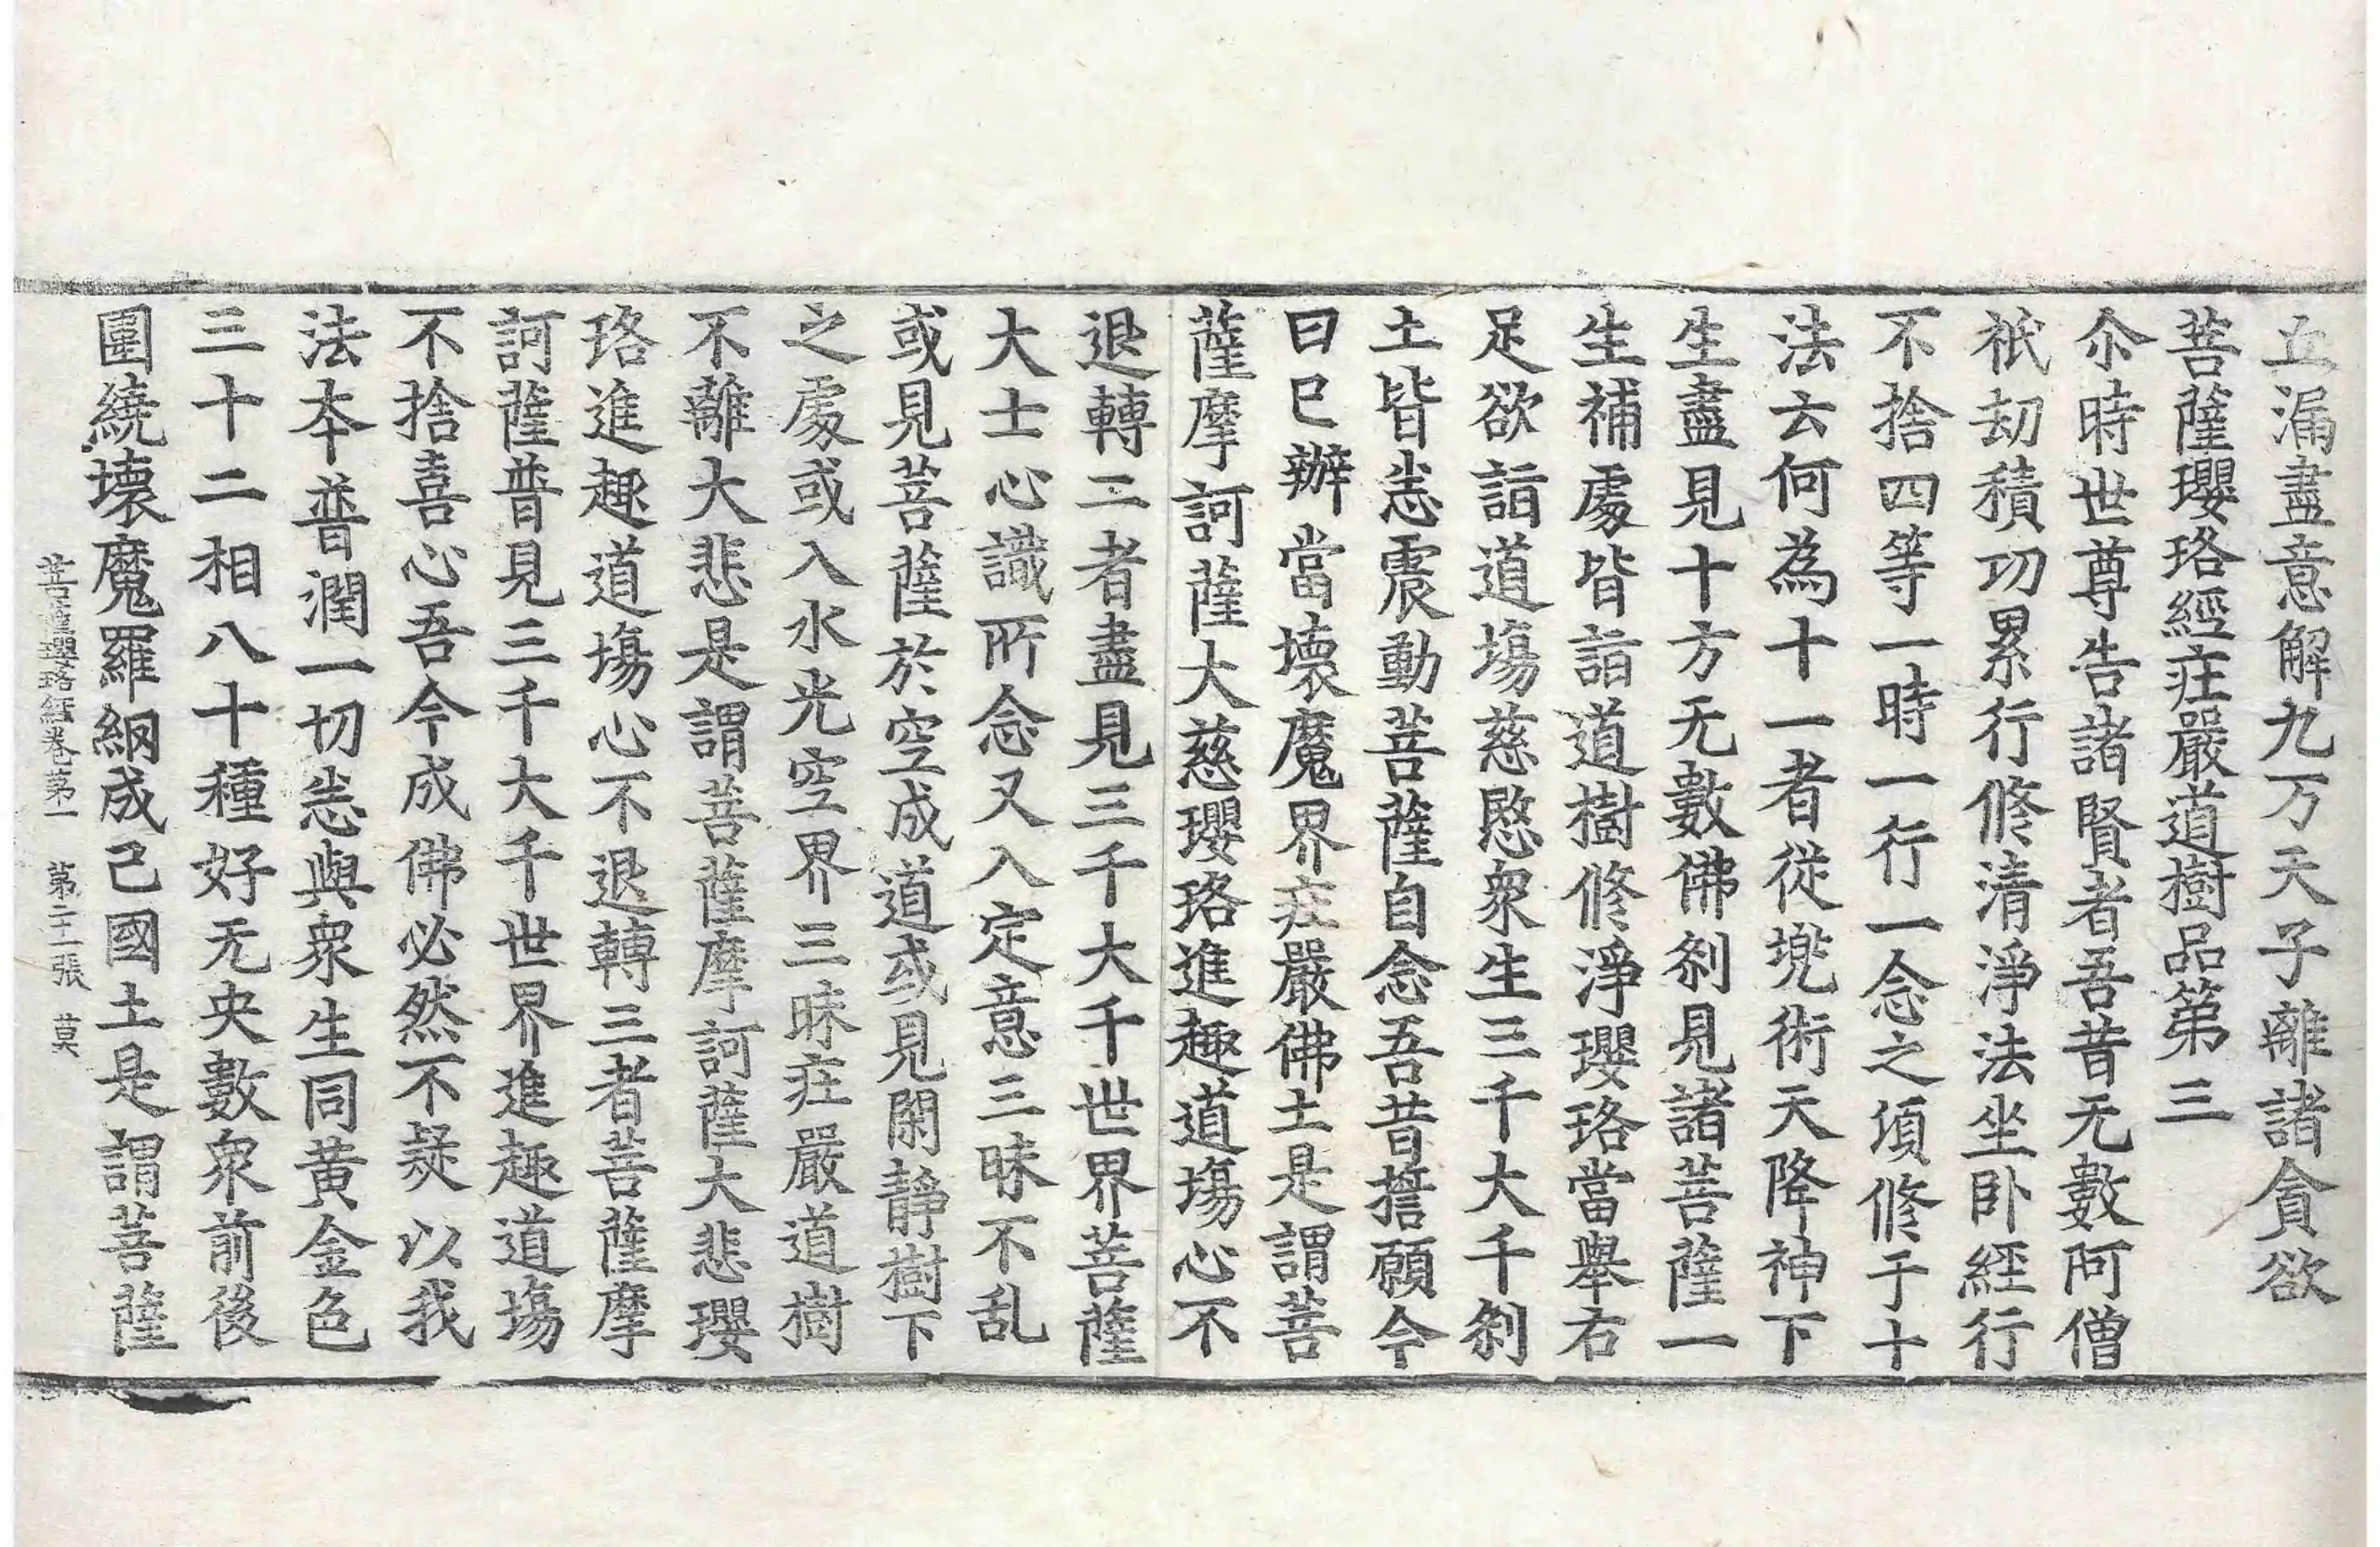 丘漏盡意解九万天子離諸貪欲
菩薩瓔珞經庄嚴道樹品第三
尒時世尊告諸賢者吾昔无數阿僧
祇劫積功累行修清淨法坐卧經行
不捨四等一時一行一念之頃修于十
法云何為十一者從兠術天降神下
生盡見十方无數佛刹見諸菩薩一
生補處皆詣道樹修淨瓔珞當舉右
足欲詣道塲慈愍衆生三千大千刹
土皆悉震動菩薩自念吾昔誓願今
日已辦當壞魔界庄嚴佛土是謂菩
薩摩訶薩大慈瓔珞進趣道塲心不
退轉二者盡見三千大千世界菩薩
大士心識所念又入定意三昧不乱
或見菩薩於空成道或見閑静樹下
之處或入水光空界三昧庄嚴道樹
不離大悲是謂菩薩摩訶薩大悲瓔
珞進趣道塲心不退轉三者菩薩摩
訶薩普見三千大千世界進趣道塲
不捨喜心吾今成佛必然不疑以我
法本普潤一切悉與衆生同黄金色
三十二相八十種好无央數衆前後
圍繞壞魔羅網成己國土是謂菩薩
菩薩瓔珞經卷第一　第二十一張　莫